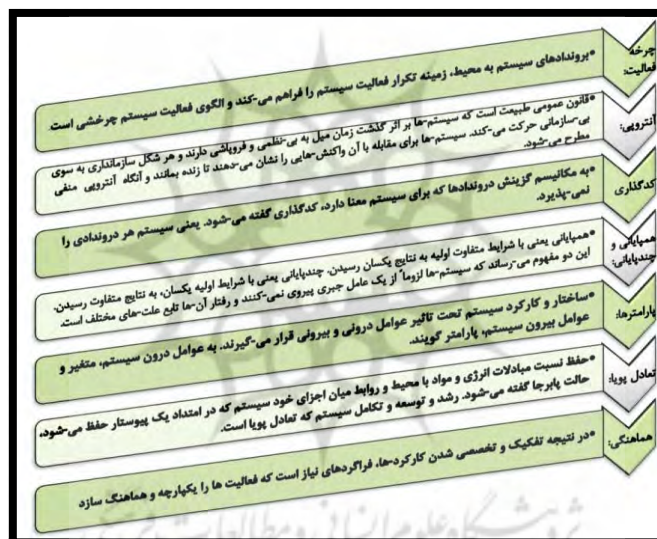 چرخه
فعالیت:
•بروندادهای سیستم به محیط، زمینه تکرار فعالیت سیستم را فراهم می-کند و الگوی فعالیت سیستم چرخشی است.
آنتروپی:
•قانون عمومی طبیعت است که سیستم-ها بر اثر گذشت زمان میل به بی-نظمی و فروپاشی دارند و هر شکل سازمانداری به سوی
بی-سازمانی حرکت می-کند. سیستم-ها برای مقابله با آن واکنش-هایی را نشان می-دهند تا زنده بمانند و آنگاه آنتروپی منفی
مطرح می-شود.
کدگذاری
•به مکانیسم گزینش دروندادها که برای سیستم معنا دارد، کدگذاری گفته می-شود. یعنی سیستم هر دروندادی را
نمی-پذیرد.
همپایانی و
چندپایانی:
•همپایانی یعنی با شرایط متفاوت اولیه به نتایج یکسان رسیدن. چندپایانی یعنی با شرایط اولیه یکسان، به نتایج متفاوت رسیدن.
این دو مفهوم می-رساند که سیستم-ها لزوماً از یک عامل جبری پیروی نمی-کنند و رفتار آن-ها تابع علت-های مختلف است.
پارامترها:
•ساختار و کارکرد سیستم تحت تاثیر عوامل درونی و بیرونی قرار می-گیرند. به عوامل درون سیستم، متغیر و
عوامل بیرون سیستم، پارامتر گویند.
تعادل پویا:
•حفظ نسبت مبادلات انرژی و مواد با محیط و روابط میان اجزای خود سیستم که در امتداد یک پیوستار حفظ می-شود،
حالت پابرجا گفته می-شود. رشد و توسعه و تکامل سیستم که تعادل پویا است.
هماهنگی:
•در نتیجه تفکیک و تخصصی شدن کارکرد-ها، فراگردهای نیاز است که فعالیت ها را یکپارچه و هماهنگ سازد
پژوهشگاه علوم انسانی و مطالعات فرهنگی